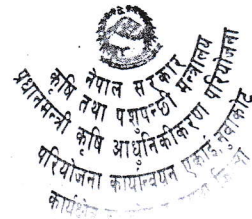 नेपाल सरकार
कृषि तथा पशुपन्छी मन्त्रालय
प्रधानमन्त्री कृषि आधुनिकीकरण परियोजना
परियोजना कार्यान्वयन एकाई, नुवाकोट
कार्यक्षेत्र